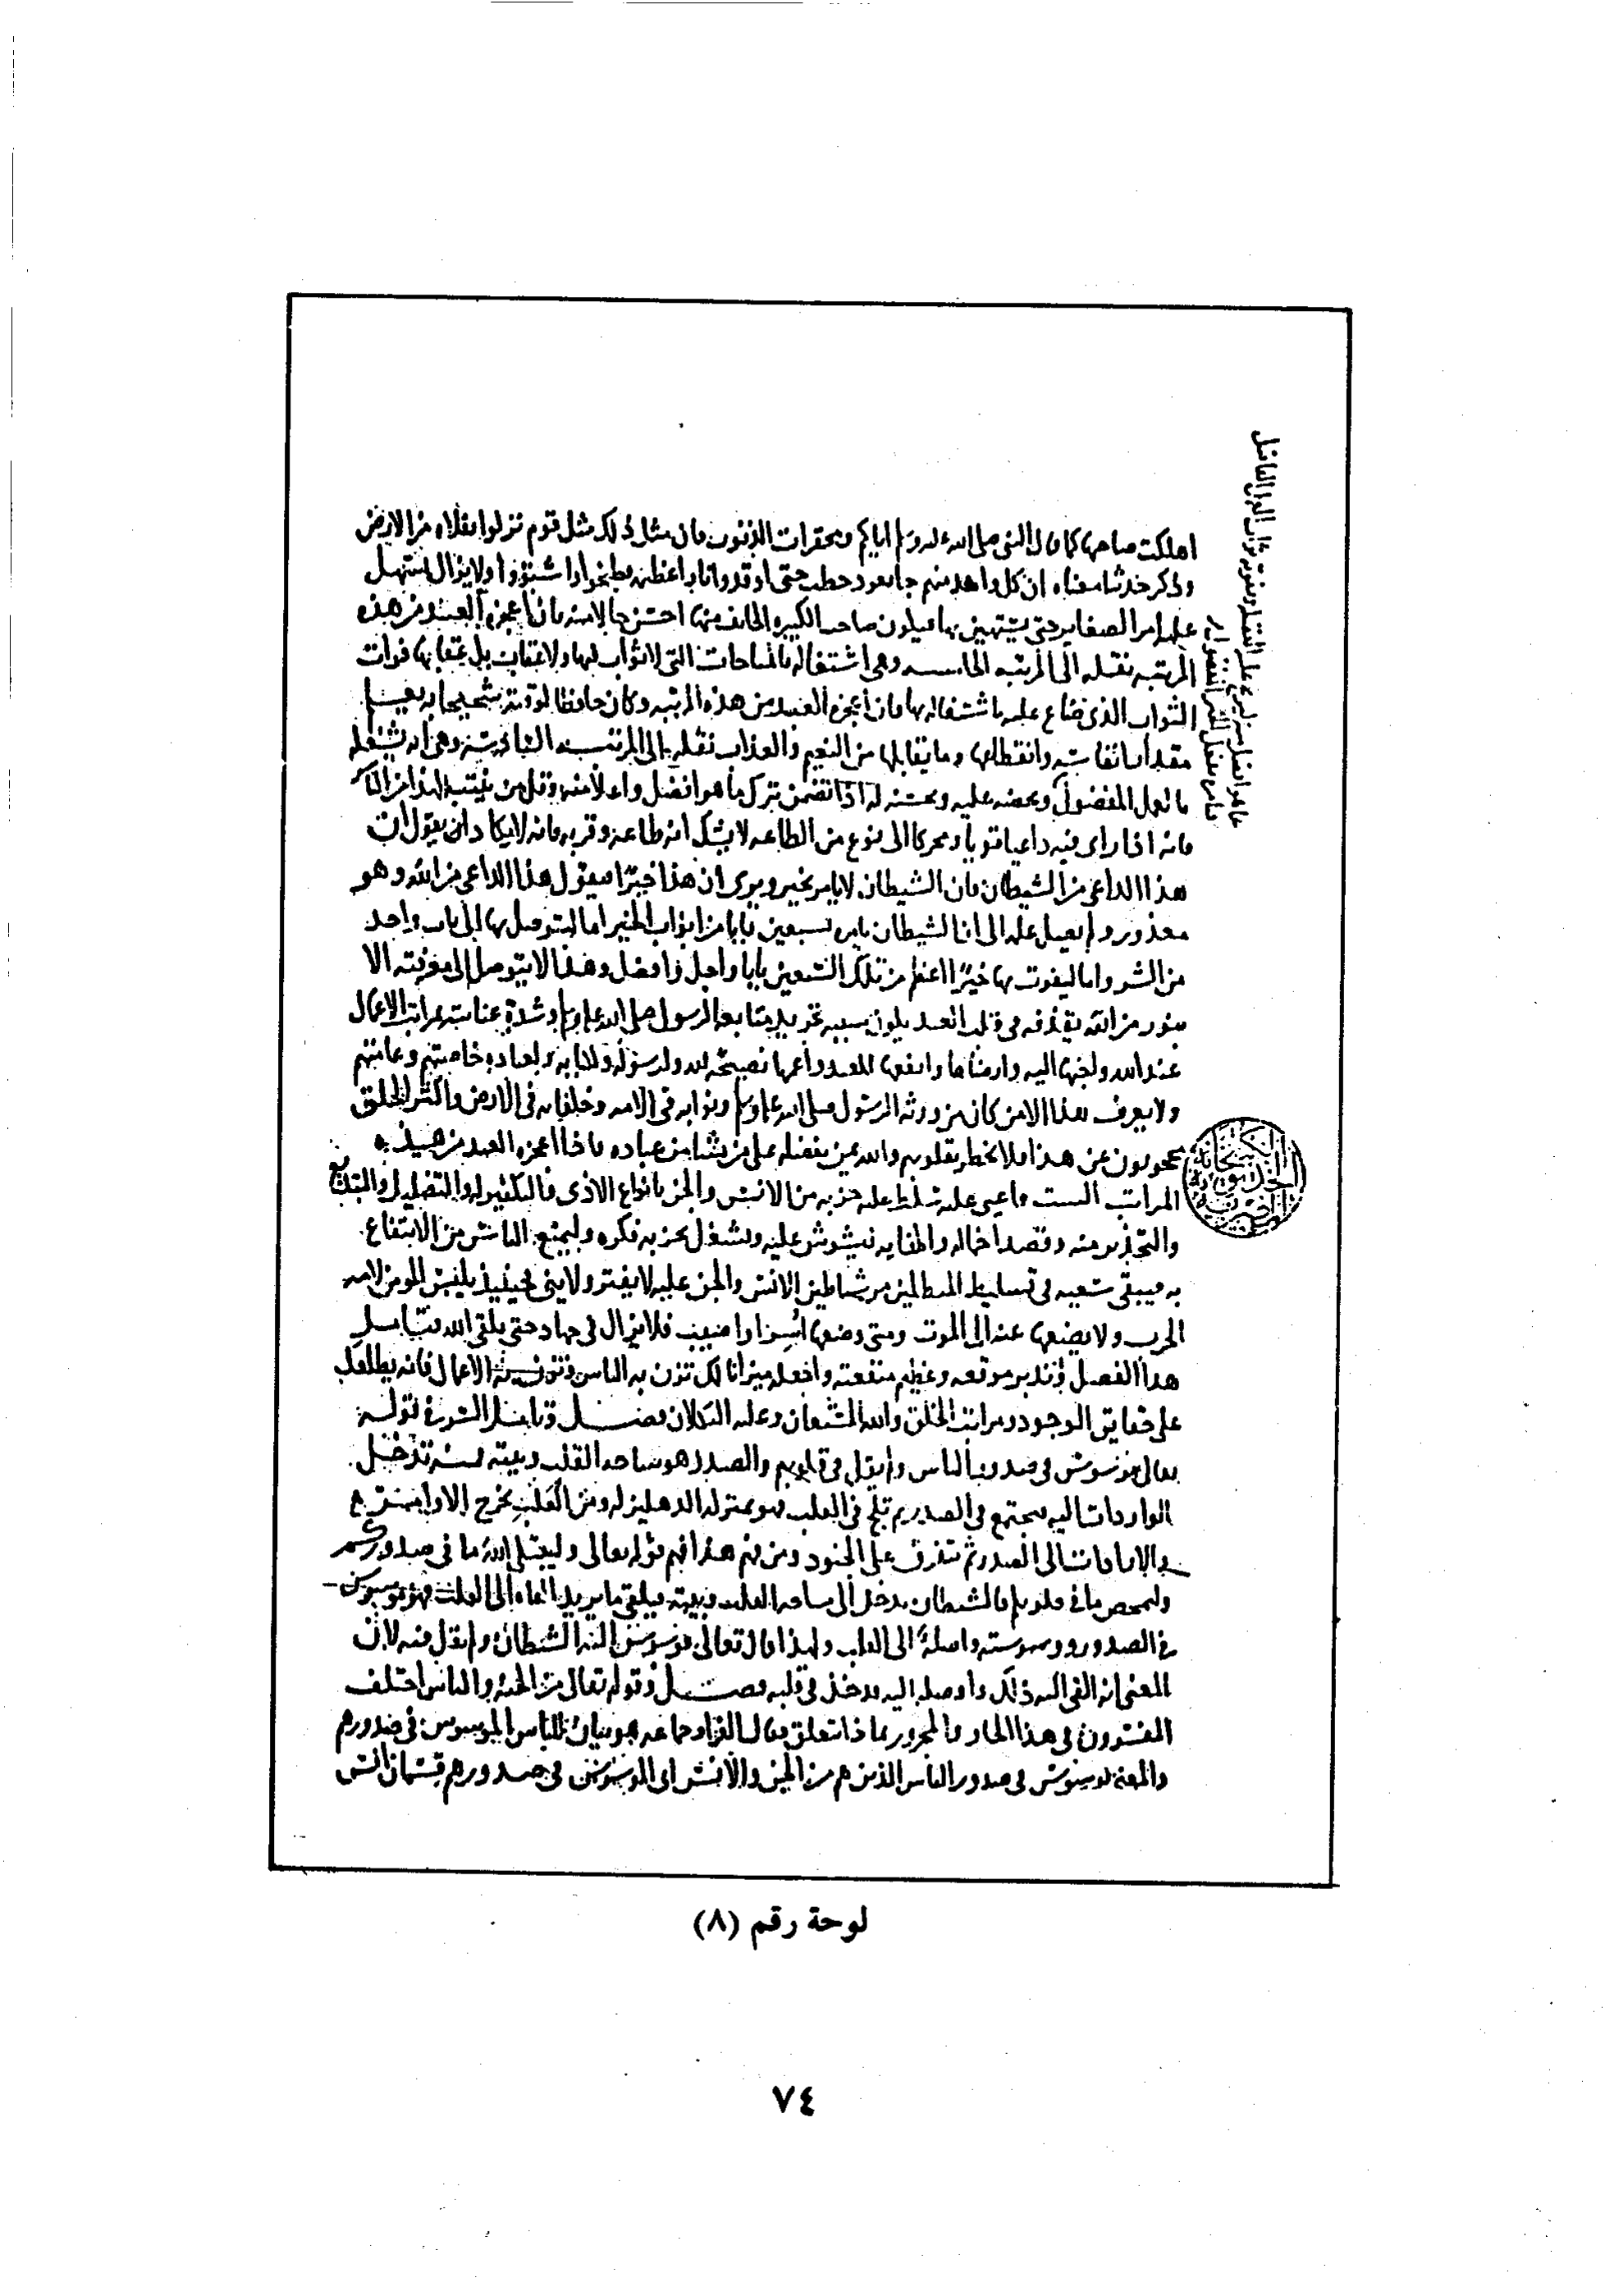 اهلكت صاحبها كما قال النبي صلى الله عليه وسلم اياكم ومحقرات الذنوب فان مثل ذلك مثل قوم نزلوا بفلاه من الارض
وذكر حديثا معناه ان كل واحد منهم جا بعود حطب حتى اوقدوا نارا عظيمه فطبخوا واشتووا ولا يزال يسهل
عليه امر الصغاير حتى يستهين بها فيكون صاحب الكبيره الخايف منها احسن حالا منه فان اعجزه العبد من هذه
المرتبه نقله الى المرتبه الخامسه وهي اشتغاله بالمباحات التي لا ثواب فيها ولا عقاب بل عقابها فوات
الثواب الذي ضاع عليه باشتغاله بها فان اعجزه العبد من هذه المرتبه وكان حافظا لوقته شحيحا به يعلم
مقدار انفاسه وانقطاعها وما يقابلها من النعيم والعذاب نقله الى المرتبه السادسه وهي ان يشغله
بالعمل المفضول ويحضه عليه ويحسنه له اذا تضمن ترك ما هو افضل واعلا منه وقل من ينتبه لهذا من الناس
فانه اذا راى فيه داعيا قويا ومحركا الى نوع من الطاعه لا يشك انه طاعه وقربه فانه لا يكاد ان يقول ان
هذا الداعي من الشيطان فان الشيطان لا يامر بخير ويرى ان هذا خيرا فيقول هذا الداعي من الله وهو
معذور ولم يصل علمه الى ان الشيطان يامر بسبعين بابا من ابواب الخير اما ليتوصل بها الى باب واحد
من الشر واما ليفوت بها خيرا اعظم من تلك السبعين بابا واجل وافضل وهذا لا يتوصل الى معرفته الا
بنور من الله يقذفه في قلب العبد يكون سببه تجريد متابعه الرسول صلى الله عليه وسلم وشدة عنايته بمراتب الاعمال
عند الله واحبها اليه وارضاها وانفعها للعبد واعمها نصيحه لله ولرسوله ولكتابه ولعباده خاصتهم وعامتهم
ولا يعرف هذا الا من كان من ورثه الرسول صلى الله عليه وسلم ونوابه في الامه وخلفايه في الارض واكثر الخلق
محجوبون عن هذا فلا يخطر بقلوبهم والله يمن بفضله على من يشا من عباده فاذا اعجزه العبد من هذه
المراتب الست واعيى عليه سلط عليه حزبه من الانس والجن بانواع الاذى والتكفير له والتضليل والتبديع
والتحذير منه وقصد اخماله واطفايه ليشوش عليه ويشغل بحربه فكره وليمنع الناس من الانتفاع
به فيبقى سعيه في تسليط المبطلين من شياطين الانس والجن عليه لا يفتر ولا يني فحينيذ يلبس المومن لامه
الحرب ولا يضعها عنه الى الموت ومتى وضعها اسر او اصيب فلا يزال في جهاد حتى يلقى الله فتامل
هذا الفصل وتدبر موقعه وعظيم منفعته واجعله ميزانا لك تزن به الناس وتزن به الاعمال فانه يطلعك
على حقايق الوجود ومراتب الخلق والله المستعان وعليه التكلان فصل وتامل السر في قوله
تعالى يوسوس في صدور الناس ولم يقل في قلوبهم والصدر هو ساحه القلب وبيته فمنه تدخل
الواردات اليه فتجتمع في الصدر ثم تلج في القلب فهو بمنزله الدهليز له ومن القلب تخرج الاوامر
والارادات الى الصدر ثم تتفرق على الجنود ومن فهم هذا فهم قوله تعالى وليبتلي الله ما في صدوركم
وليمحص ما في قلوبكم فالشيطان يدخل الى ساحه القلب وبيته فيلقي ما يريد القاه الى القلب فهو موسوس
في الصدور ووسوسته واصلة الى القلب ولهذا قال تعالى فوسوس اليه الشيطان ولم يقل فيه لان
المعنى انه القى اليه ذلك واوصله اليه فدخل في قلبه فصل وقوله تعالى من الجنه والناس اختلف
المفسرون في هذا الجار والمجرور بماذا تتعلق فقال الفرا وجماعه هو بيان للناس الموسوس في صدورهم
والمعنى يوسوس في صدور الناس الذين هم من الجن والانس اي الموسوس في صدورهم قسمان انس
لوحة رقم (٨)
٧٤